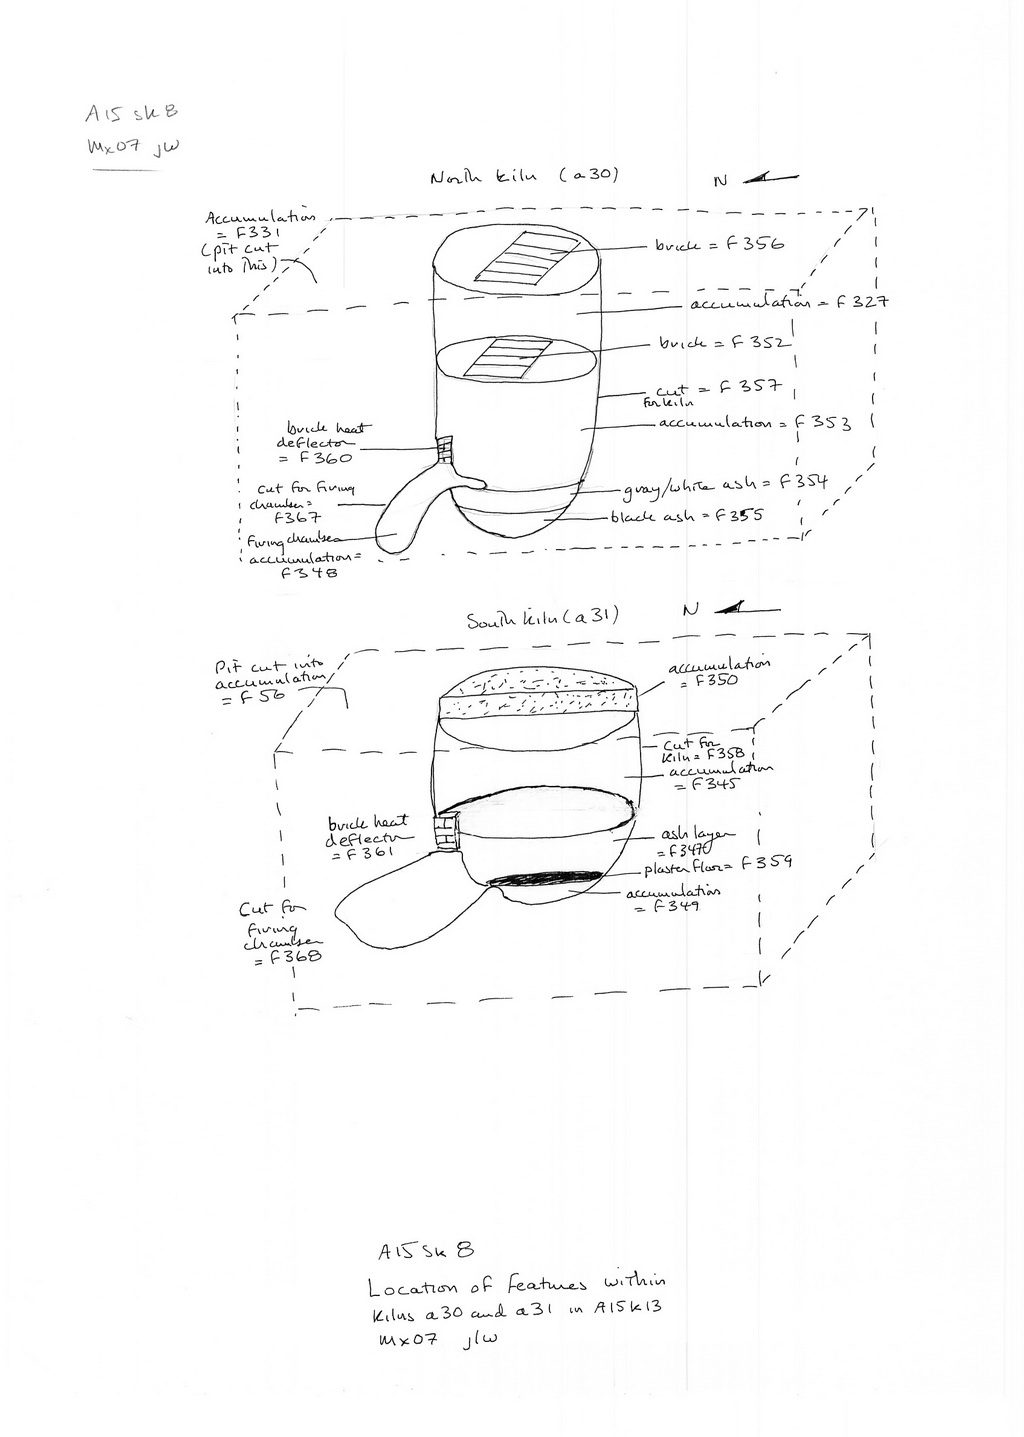 A15 sk 8
Mx07 jw
North kiln (a30)
N
Accumulation
= F331
(pit cut
into this)
brick = F356
accumulation = F327
brick = F352
cut = F357
for kiln
accumulation = F353
brick heat
deflector
= F360
cut for firing
chamber =
F367
gray/white ash = F354
black ash = F355
Firing chamber
accumulation =
F348
South kiln (a31)
N
Pit cut into
accumulation
= F56
accumulation
= F350
cut for
kiln = F358
accumulation
= F345
brick heat
deflector
= F361
ash layer
= F347
plaster floor = F359
accumulation
= F349
Cut for
firing
chamber
= F368
A15 sk 8
Location of features within
kilns a30 and a31 in A15k13
Mx07 jlw